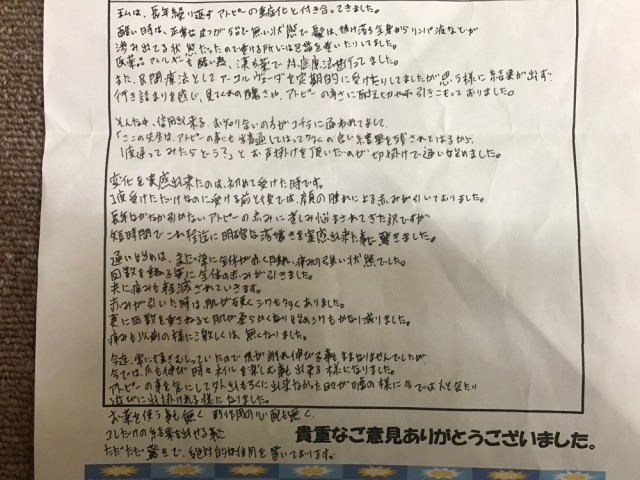 私は、長年繰り返すアトピーの重症化と付き合ってきました。
酷い時は、正常な皮フが分らで無い状態で髪は、抜け落ち全身からリンパ液などが
滲み出てる状態だったので寝る所には包帯を巻いたりしてました。
医薬品アレルギーも酷い為、漢方薬で対症療法を行ってました。
また、民間療法としてアーユルヴェーダを定期的に受けたりしてましたが思う様に結果が出ず
行き詰まりを感じ、見ためへの醜さや、アトピーの辛さに耐え切れず引きこもっておりました。
そんな中、信用出来る、お知り合いの方がコチラに通われてまして、
「ここの先生は、アトピーの事にも精通してはって多くの良い結果を残されてはるから、
1度通ってみたらどう?」とお声掛けを頂いたのが切掛けで通い始めました。
変化を実感出来たのは、初めて受けた時です。
1度受けただけなのに受ける前と後では、顔の腫れによる赤みが引いておりました。
長年なかなか引かないアトピーの赤みに苦しみ悩まされてきた訳ですが
短時間でこれ程迄に明確な落ち着きを実感出来た事に驚きました。
通い始めは、まだ常に全体が赤く腫れ、痛みの強い状態でした。
回数を重ねる毎に全体の赤みが引きました。
共に痛みも軽減されていきます。
赤みが引いた時は、肌が硬くシワも多くありました。
更に回数を重ねると肌が柔らかくなり目のシワもかなり減りました。
痛みも以前の様に激しくは、無くなりました。
今迄、常に掻きむしっていたので爪が削れ伸びる事もままなりませんでしたが
今では、爪も伸び時々ネイルを楽しむ事も出来る様になりました。
アトピーの事を気にして外出もろくに出来なかった日々が嘘の様に今では人と会たり
遊びに出掛けれる様になりました。
お薬を使う事も無く副作用の心配も無く、
コレだけの結果を出せる事に
ただただ驚きで、絶対的な信用を置いております。
貴重なご意見ありがとうございました。